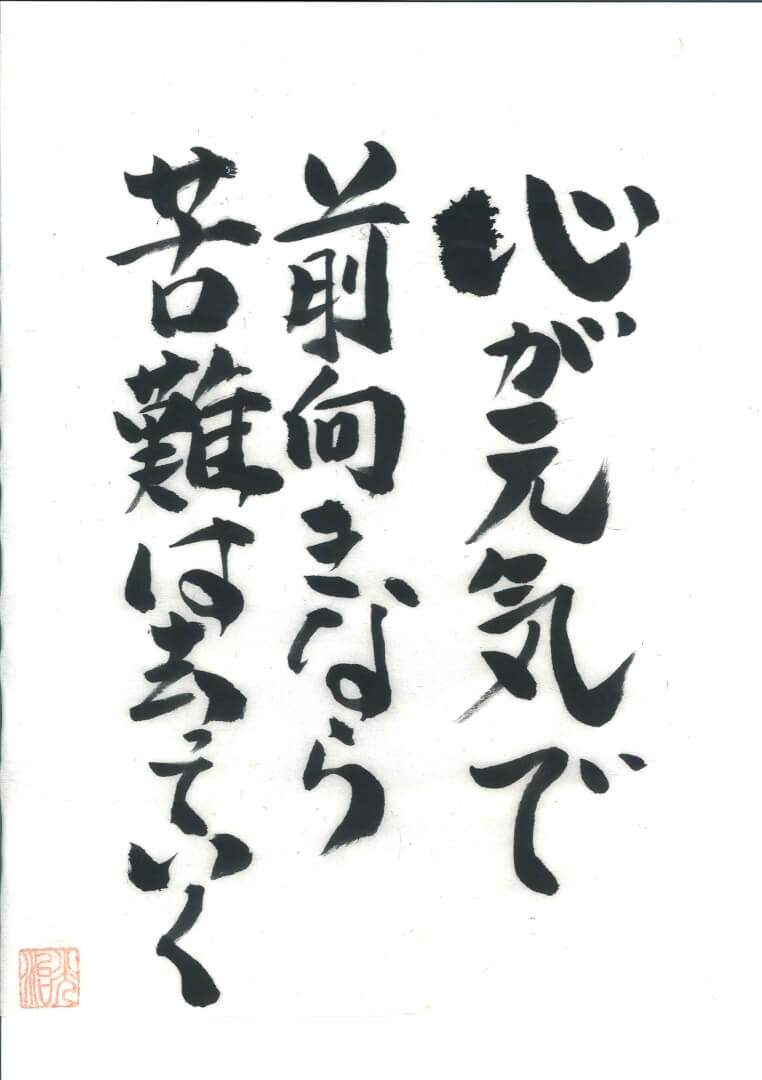 心が元気で
前向きなら
苦難は去っていく